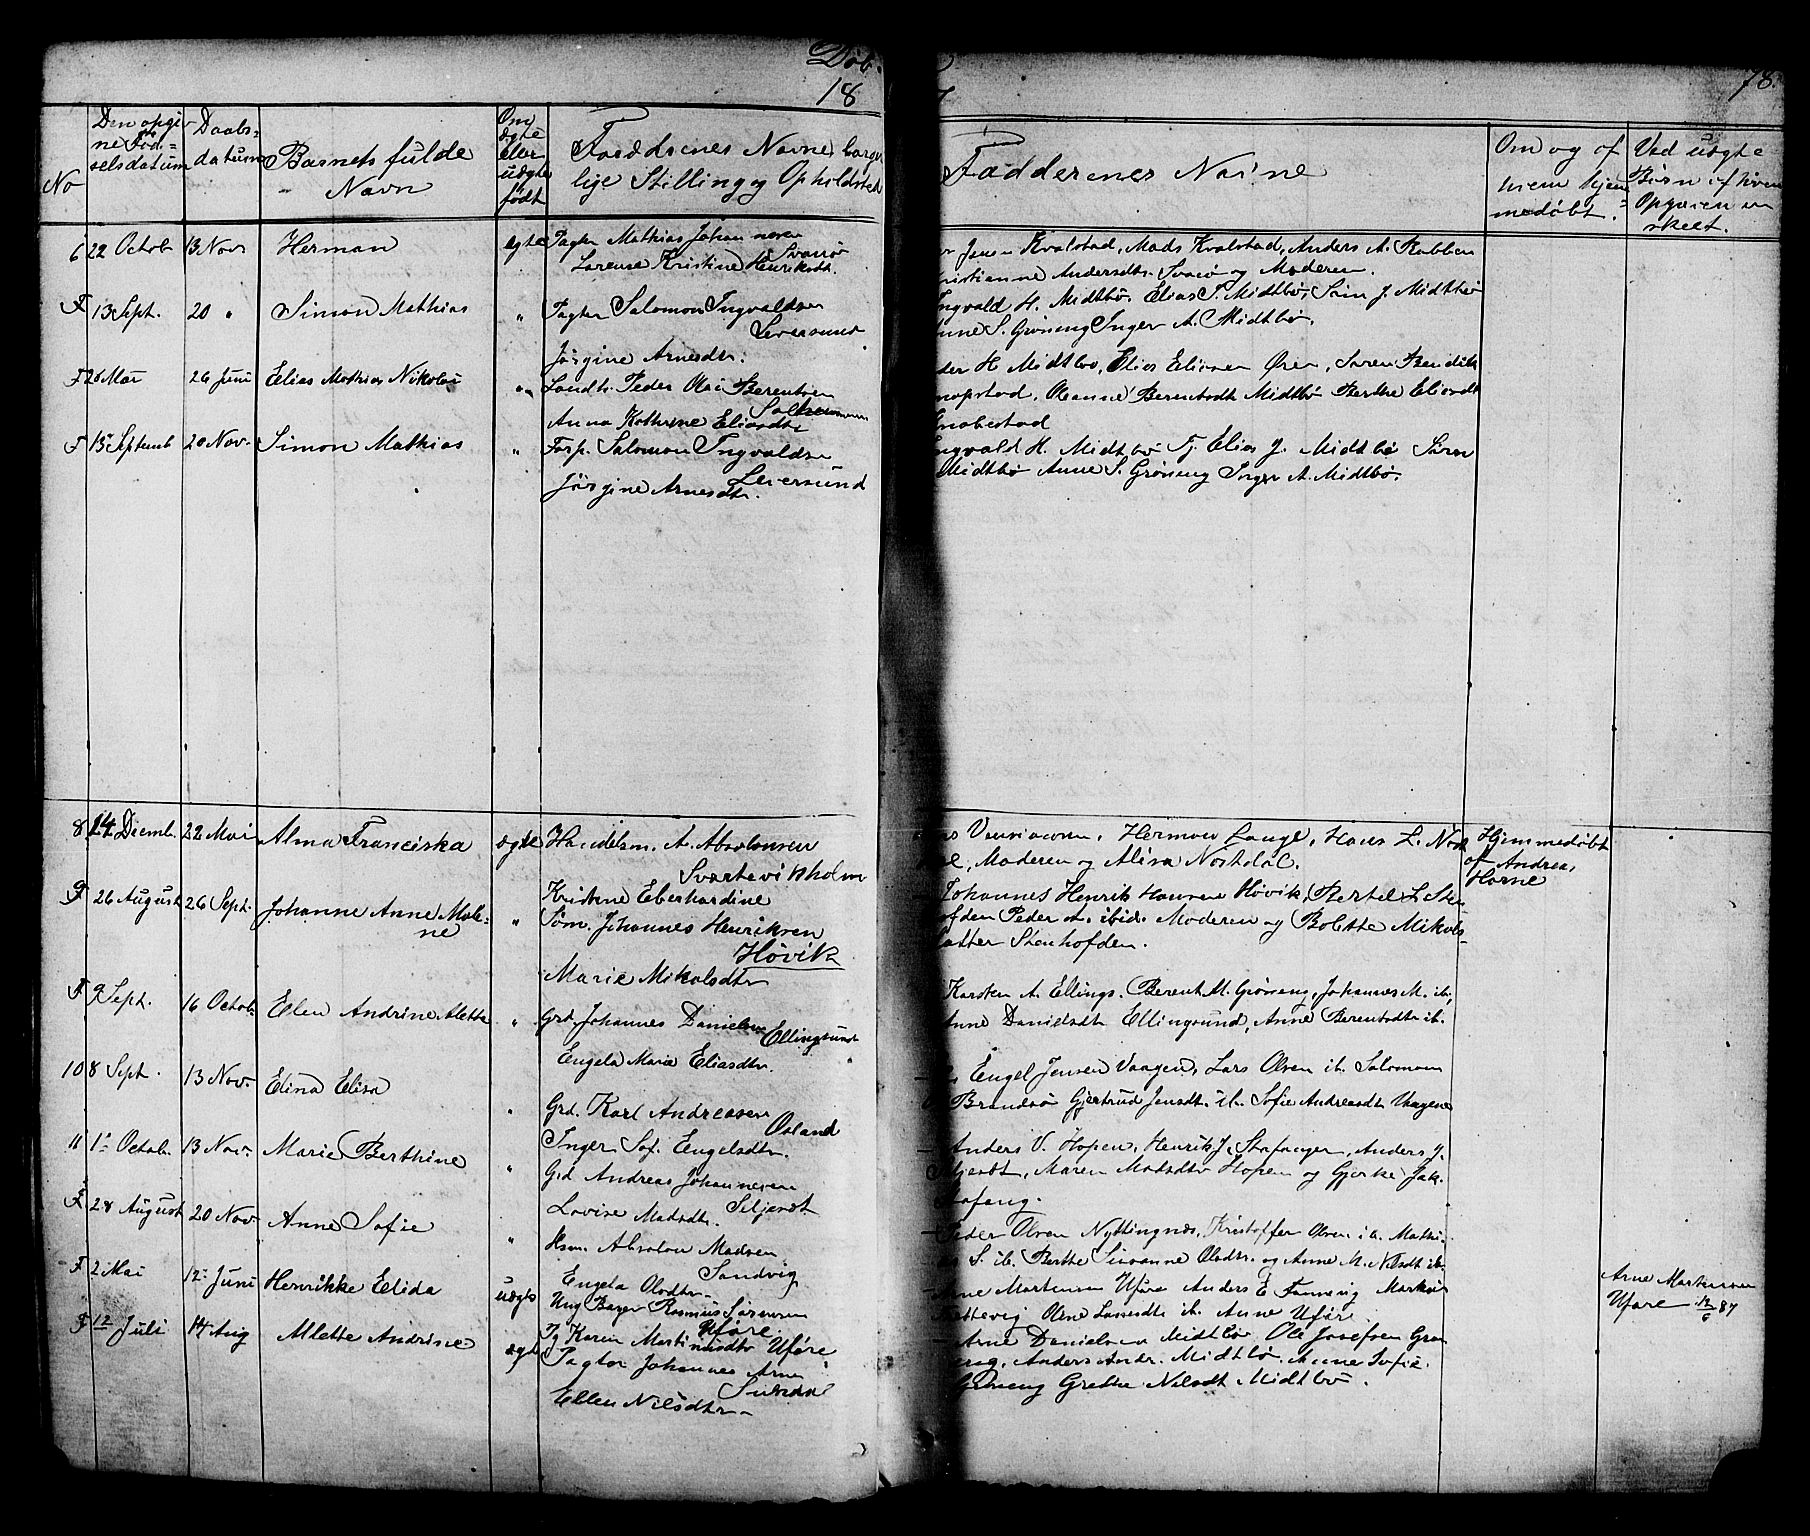 Døb.
18
78.
No
Den opgiv
ne Fød=
selsdatum
Daabs=
datum
Barnets fulde
Navn
Om
ægte
eller
uægte
født
Forældrenes Navne, borger
lige Stilling og Opholdsted
Faddernes Navne
Om og af
hvem hjem
medøbt.
Ved uægte
Børn af hvem
Opgaven er
skeet.
6 22 Octob 13 Nov Herman ægte Pagter Mathias Johannesen
Svanø
Lorense Kristine Henriksdt.
Jensen Kvalstad, Mads Kvalstad, Anders A. Stubben
Kristianne Andersdtr. Svanø og Moderen.
F 13 Sept. 20 " Simon Mathias " Pagter Salomon Ingvaldsen
Leversund
Jørgine Arnesdtr.
Ingvald H. Midtbø. Elias J. Midtbø, Søren J. Midtbø
Anne S. Grøneng Inger A. Midtbø.
F 26 Mai 26 Juni Elias Mathias Nikolai " Landh. Peder Olai Berentsen
Anna Kathrine Eliasdtr
H Midtbø, Elias Eliassen Øren, Søren Bendik
Knapstad, Oleanne Berentsdt Midtbø Berthe Eliasdt
Gnabestad
F 15 Septemb 20 Nov. Simon Mathias " Forp. Salomon Ingvaldsen
Leversund
Jørgine Arnesdtr.
Ingvald H. Midtbø Fj. Elias J. Midtbø Søren
Midtbø Anne S. Grøneng Inger A. Midtbø.
8 14 Decemb. 22 Mai Alma Franciska ægte Handelsm. A. Absalonsen
Svartevikholm
Kristene Eberhardine
Hermann Lange, Hans L. Nord
Moderen og Alisa Nordal.
Hjemmedøbt
af Andrea
Horne
F 26 August 26 Sept. Johanne Anne Male=
ne
" Søm. Johannes Henriksen
Høvik
Marie Mikalsdtr
Johannes Henrik Hansen Høvik, Bertel L. Sten
hofden Peder A. ibid. Moderen og Bolette Mikals=
datter Stenhofden.
F 9 Sept. 16 Octob. Ellen Andrine Aletta " Grd. Johannes Danielsen
Ellingsund
Engela Marie Eliasdtr.
Karsten A. Ellings. Berent M. Grøneng, Johannes M. ib,
Anne Danielsdtr Ellingsund, Anne Berentsdtr ib.
10 8 Sept. 13 Nov. Elina Elisa " Grd. Karl Andreasen
Osland
Inger Sof. Engelsdtr.
Engel Jensen Vaagen, Lars Olsen ib. Salomon
Brandsø Gjertrud Jensdt. ib. Sofie Andreasdt Vaagene
11 1. Octob. 13 Nov. Marie Berthine " Grd Andreas Johannesen
Siljerdt
Lovise Madsdtr.
Anders V. Hopen, Henrik J. Stafanger, Anders J.
Siljerdt, Maren Madsdtr Hopen og Gjerke Jak.
Stafang.
F 28 August 20 Nov Anne Sofie " Hsm. Absalon Madsen
Sandvig
Engela Olsdtr
Peder Olsen Nyttingnes, Kristoffer Olsen ib. Mathi
S. ib. Berthe Susanne Olsdtr. og Anne M. Nilsdt ib.
F 2 Mai 12 Juni Henrikke Elida uægte Ung Barger Rasmus Sørensen
Uføre
Pg Karen Martinusdtr Uføre
Arne Martensen Uføre Anders E Fannevig Markus
Olene Lassesdtr ib. Anne Uføre.
Arne Martensen
Uføre 12/6 87
F 12 Juli 14 Aug Alette Andrine ægte Pagter Johannes Arne
Ellen Nilsdtr
Arne Danielsen Midtbø Ole Josefsen Grø
neng, Anders Andr. Midtbø. Anne Sofie
Grøneng Grethe Nilsdt Midtbø.